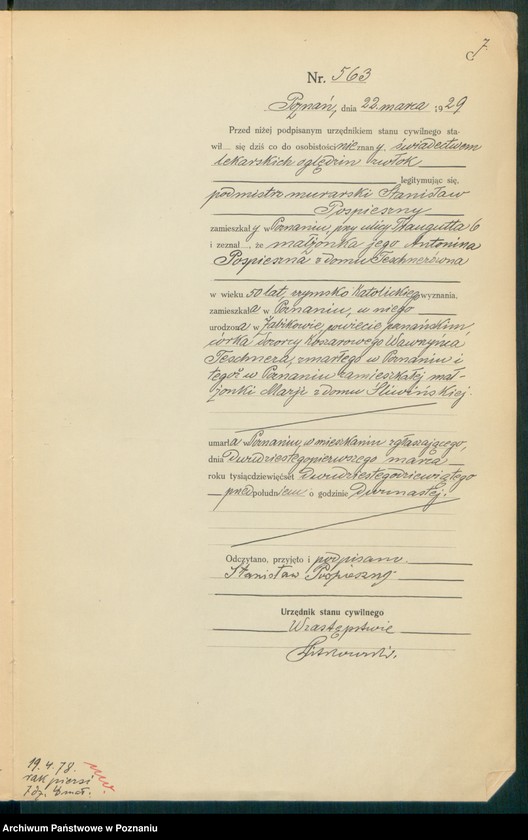 7
C
Nr. 563
Poznań, dnia 22. marca 1929
Przed niżej podpisanym urzędnikiem stanu cywilnego sta-
wił ... się dziś co do osobistości nie znany, świadectwem
lekarskich oględzin zwłok
legitymując się,
podmistrz murarski Stanisław
Pospieszny
zamieszkały w Poznaniu, przy ulicy Traugutta 6
i zeznał ..., że małżonka jego Antonina
Pospieszna z domu Teschnerówna
w wieku 50 lat, rzymsko katolickiego wyznania,
zamieszkała w Poznaniu, u niego
urodzona w Żabikowie, powiecie poznańskim,
córka dozorcy koszarowego Wawrzyńca
Teschnera, zmarłego w Poznaniu i
tegoż w Poznaniu zamieszkałej mał-
żonki Marji z domu Śliwińskiej.
umarła w Poznaniu, w mieszkaniu zgłaszającego,
dnia dwudziestego pierwszego marca
roku tysiącdziewięćset dwudziestegodziewiątego
przed południem o godzinie dwunastej.
Odczytano, przyjęto i podpisano
Stanisław Pospieszny
Urzędnik stanu cywilnego
W zastępstwie
19. 4. 78.
rak piersi
7 dz.
Archiwum Państwowe w Poznaniu